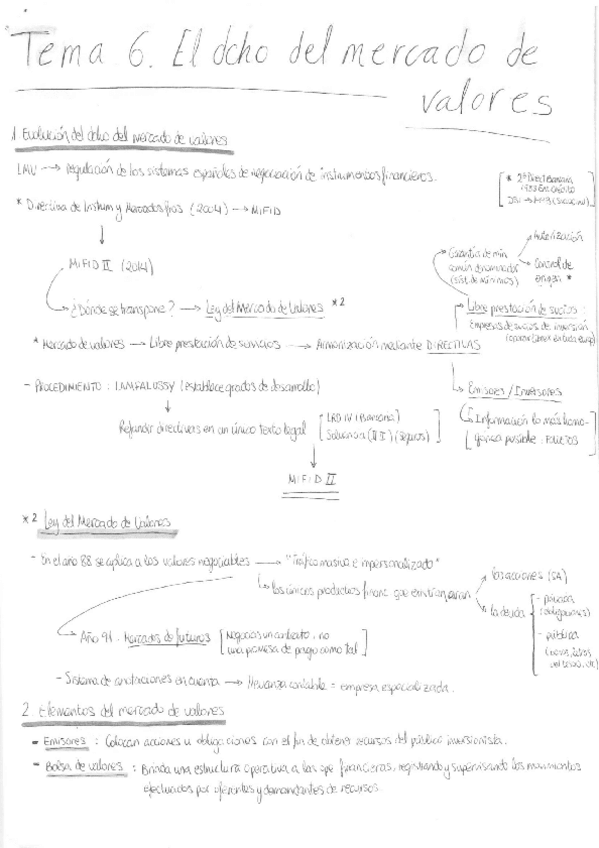 Tema 6. El dcho del mercado de
valores
1 Evolución del dcho del mercado de valores
LMV → regulación de los sistemas españoles de negociación de instrumentos financieros.
* 2ª Direct Bancaria
* Directiva de Instrum y Mercados fros (2004) → MiFID
MiFID II (2014)
¿Dónde se transpone? → Ley del Mercado de Valores *2
Garantía de mín
común denominador
(sist. de mínimos)
Autorización
Control de
origen *
Libre prestación de scios:
Empresas de scios de inversión
* Mercado de valores → Libre prestación de servicios → Armonización mediante DIRECTIVAS
Emisores / Inversores
Información lo más homo-
génea posible: Folletos
- PROCEDIMIENTO: LAMFALUSSY (establece grados de desarrollo)
Refundir directivas en un único texto legal
CRD IV (Bancaria)
Solvencia (II) (Seguros)
MiFiD II
*2 Ley del Mercado de Valores
- En el año 88 se aplica a los valores negociables → "Tráfico masivo e impersonalizado"
los únicos productos financ que existían eran
las acciones (SA)
la deuda
- privada
(obligaciones)
- pública
Año 91 - Mercados de futuros
Negocias un contrato, no
una promesa de pago como tal
- Sistema de anotaciones en cuenta → Mecánica contable = empresa especializada.
2 Elementos del mercado de valores
- Emisores: Colocan acciones u obligaciones con el fin de obtener recursos del público inversionista.
- Bolsa de valores: Brinda una estructura operativa a las ope financieras, registrando y supervisando los movimientos
efectuados por oferentes y demandantes de recursos